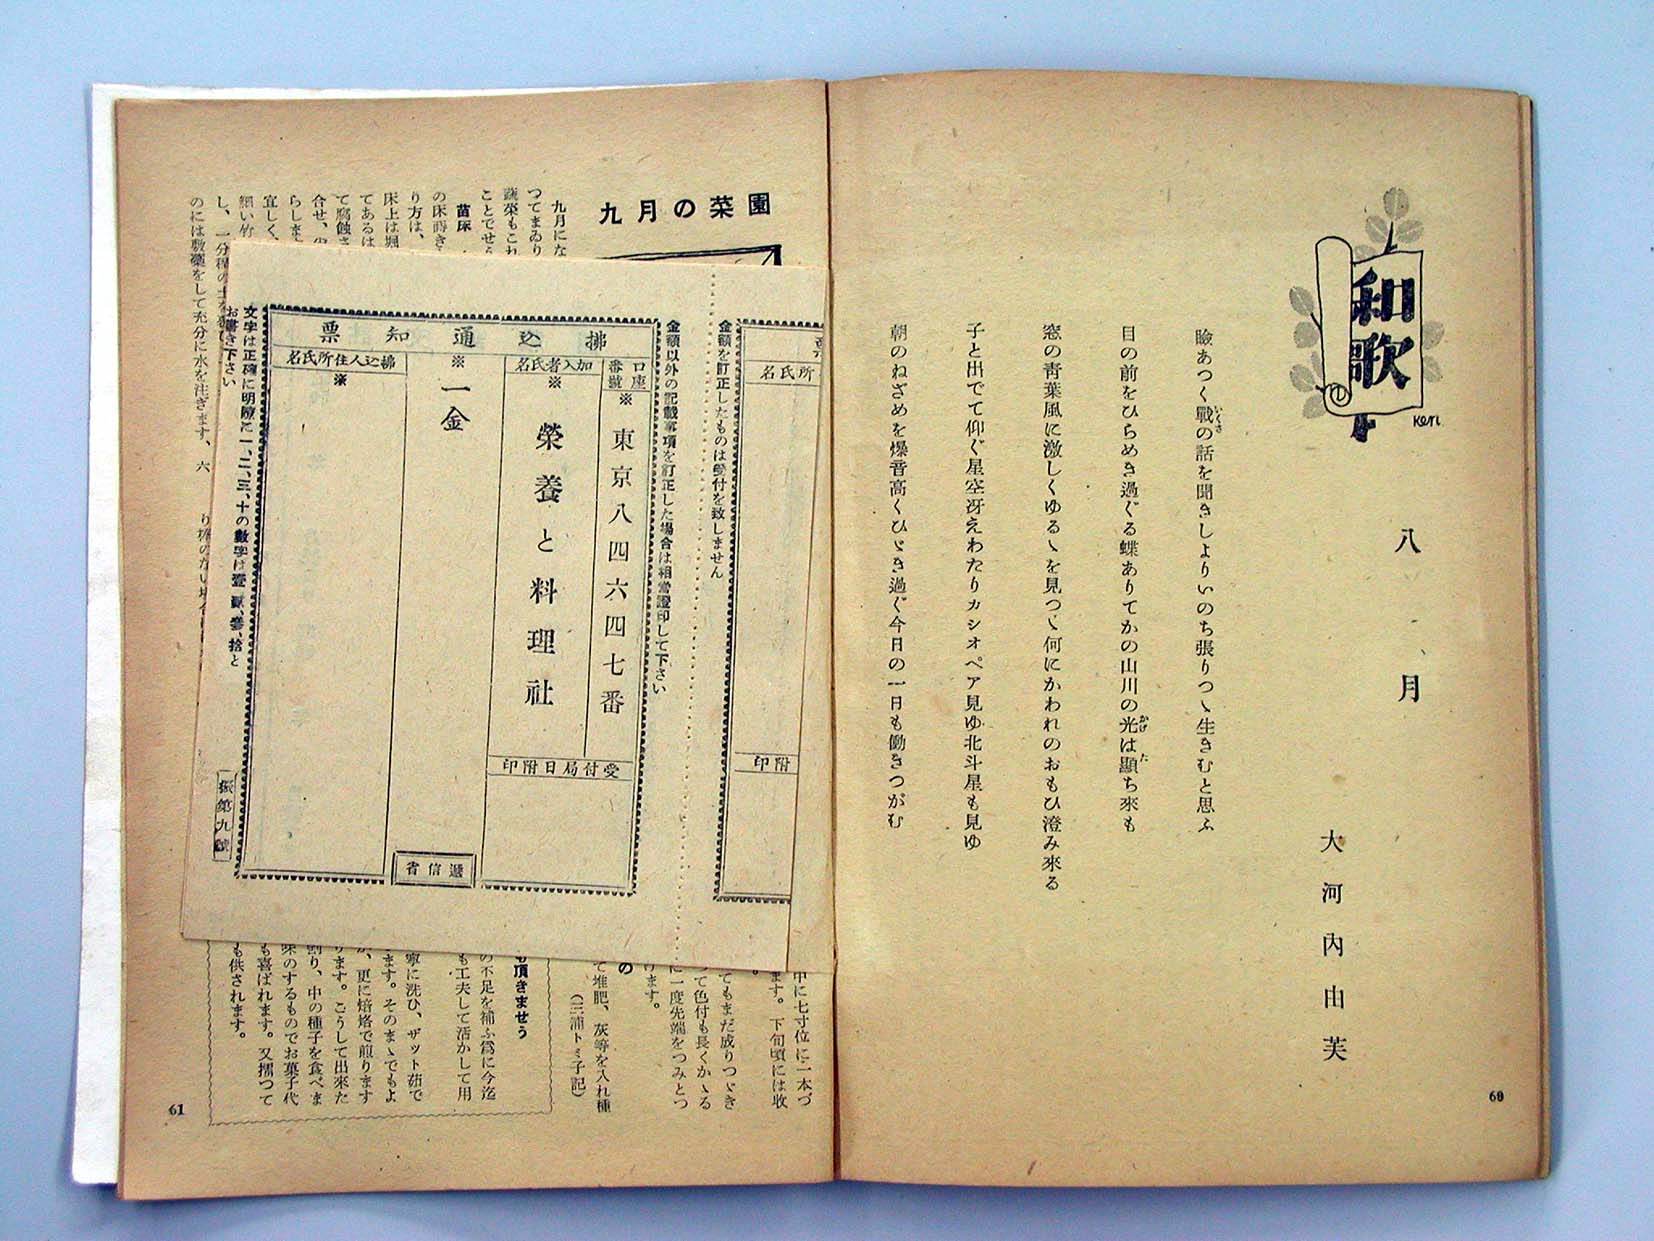 和歌
Keri
八月
大河內由芙
瞼あつく戰の話を聞きしよりいのち張りつゝ生きむと思ふ
いくさ
目の前をひらめき過ぐる蝶ありてかの山川の光は顯ち來も
かげ
た
窓の靑葉風に激しくゆるゝを見つゝ何にかわれのおもひ澄み來る
子と出でて仰ぐ星空冴えわたりカシオペア見ゆ北斗星も見ゆ
朝のねざめを爆音高くひゞき過ぐ今日の一日も働きつがむ
60
九月の菜園
九月にな
つてまゐり
蔬菜もこれ
ことでせう
苗床
の床蒔き
り方は、
床上は堀
てあるは
て腐蝕さ
合せ、
らします
宜しく、
細い竹
し、一分程の土を
のには敷藁をして充分に水を注ぎます、六
金額を訂正したものは受付を致しません
所氏名
附印
金額以外の記載事項を訂正した場合は相當證印して下さい
拂込通知票
口座番號
※
東京八四六四七番
加入者氏名
※
榮養と料理社
受付局日附印
※
一金
遞信省
拂込人住所氏名
※
文字は正確に明瞭に一、二、三、十の數字は壹、貳、參、拾と
お書き下さい
振第九號
中に七寸位に二本づ
ます。下旬頃には收
てもまだ成りつゞき
つて色付も長くかゝる
に一度先端をつみとつ
けます。
の
て堆肥、灰等を入れ種
(三浦トミ子記)
も頂きませう
の不足を補ふ爲に今迄
も工夫して活かして用
寧に洗ひ、ザット茹で
ます。そのまゝでもよ
が、更に焙烙で煎ります
ります。こうして出來た
割り、中の種子を食べま
味のするものでお菓子代
も喜ばれます。又擂つて
も供されます。
61